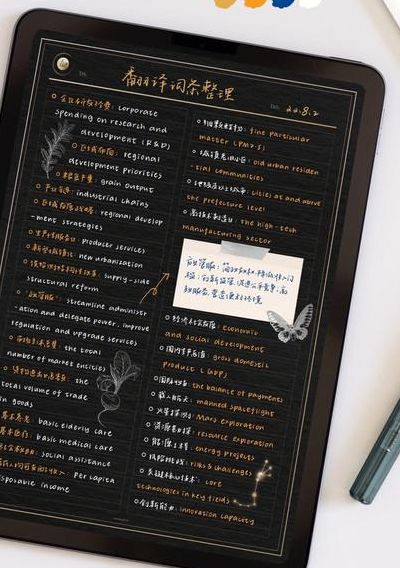 翻译词条整理
22.8.2
corporate
spending on research and
development (R&D)
regional
development priorities
grain output
industrial chains
regional develop
-ment strategies
producer services
new urbanization
supply-side
structural reform
"放管服": streamline administr
-ation and delegate power, improve
regulation and upgrade services
the total
number of market entities
the
total volume of trade
in goods
basic elderly care
basic medical care
social assistance
per capita
disposable income
fine particular
matter (PM2.5)
old urban residen
-tial communities
cities at and above
the prefecture level
the high-tech
manufacturing sector
放管服: 简政放权,降低准入门
槛;创新监管,促进公平竞争;高
效服务,营造便利环境
经济社会发展: economic
and social development
国内生产总值: gross domestic
product (GDP)
国际收支: the balance of payments
载人航天: manned spaceflight
火星探测: Mars exploration
资源勘探: resource exploration
能源工程: energy projects
风险挑战: risks & challenges
关键核心技术: core
technologies in key fields
创新能力: innovation capacity